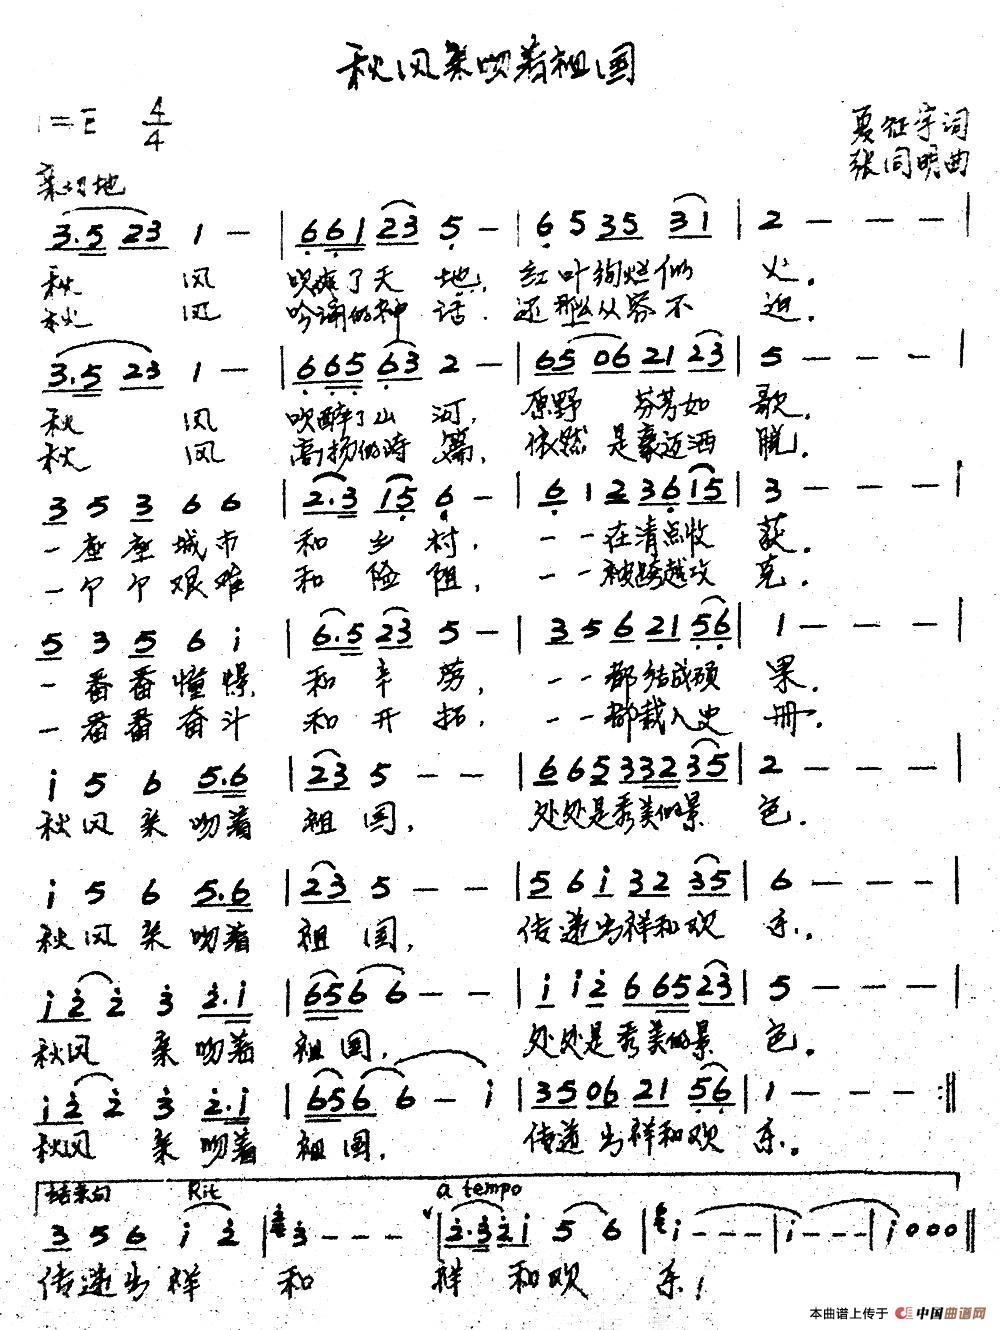 秋风亲吻着祖国
1=E 4/4
夏征宇词
张同明曲
亲切地
3.5 23 1 - | 661 23 5 - | 6 5 35 31 | 2 - - - |
秋 风 吹爽了天 地, 红叶绚烂似 火.
秋 风 吟诵的神 话. 还那么从容不 迫.
3.5 23 1 - | 665 63 2 - | 65 06 21 23 | 5 - - - |
秋 风 吹醉了山 河, 原野 芬芳如 歌.
秋 风 高扬的诗 篇, 依然 是豪迈洒 脱.
3 5 3 6 6 | 2.3 15 6 - | 6 1 2 36 15 | 3 - - - |
一座座城市 和 乡 村, 一一在清点收 获.
一个个艰难 和 险 阻, 一一被跨越攻 克.
5 3 5 6 i | 6.5 23 5 - | 3 5 6 21 56 | 1 - - - |
一番番憧憬, 和 辛 劳, 一一都结成硕 果.
一番番奋斗 和 开 拓, 一一都载入史 册.
i 5 6 5.6 | 23 5 - - | 6 6 5 332 35 | 2 - - - |
秋风亲吻着 祖 国, 处处是秀美的景 色.
i 5 6 5.6 | 23 5 - - | 5 6 i 32 35 | 6 - - - |
秋风亲吻着 祖 国, 传递出祥和欢 乐.
i2 2 3 2.i | 656 6 - - | i i2 6 65 23 | 5 - - - |
秋风 亲吻着 祖国, 处处是秀美的景 色.
i2 2 3 2.i | 656 6 - i | 35 06 21 56 | 1 - - - :||
秋风 亲吻着 祖国, 传递 出祥和欢 乐.
结束句 Rit a tempo
3 5 6 i 2 | 3 - - - | 2.3 2i 5 6 | i - - - | i - - - | i 0 0 0 ||
传递出祥 和 祥 和欢 乐!
本曲谱上传于 中国曲谱网